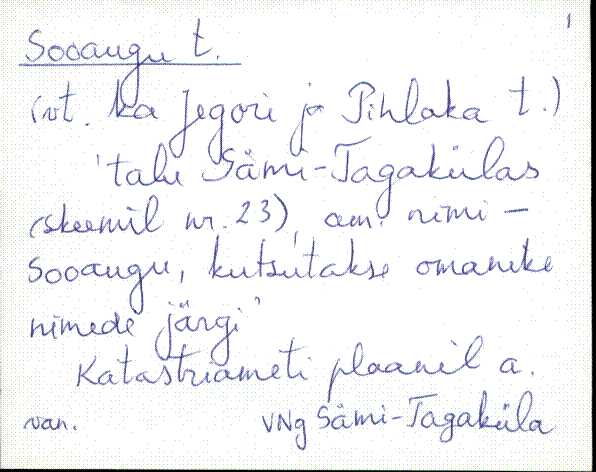 1
Sooaugu t.
(vt. ka Jegori ja Pihlaka t.)
'talu Sämi-Tagakülas
(skeemil nr. 23), am. nimi -
Sooaugu, kutsutakse omanike
nimede järgi'
Katastriameti plaanil a.
van. VNg Sämi-Tagaküla